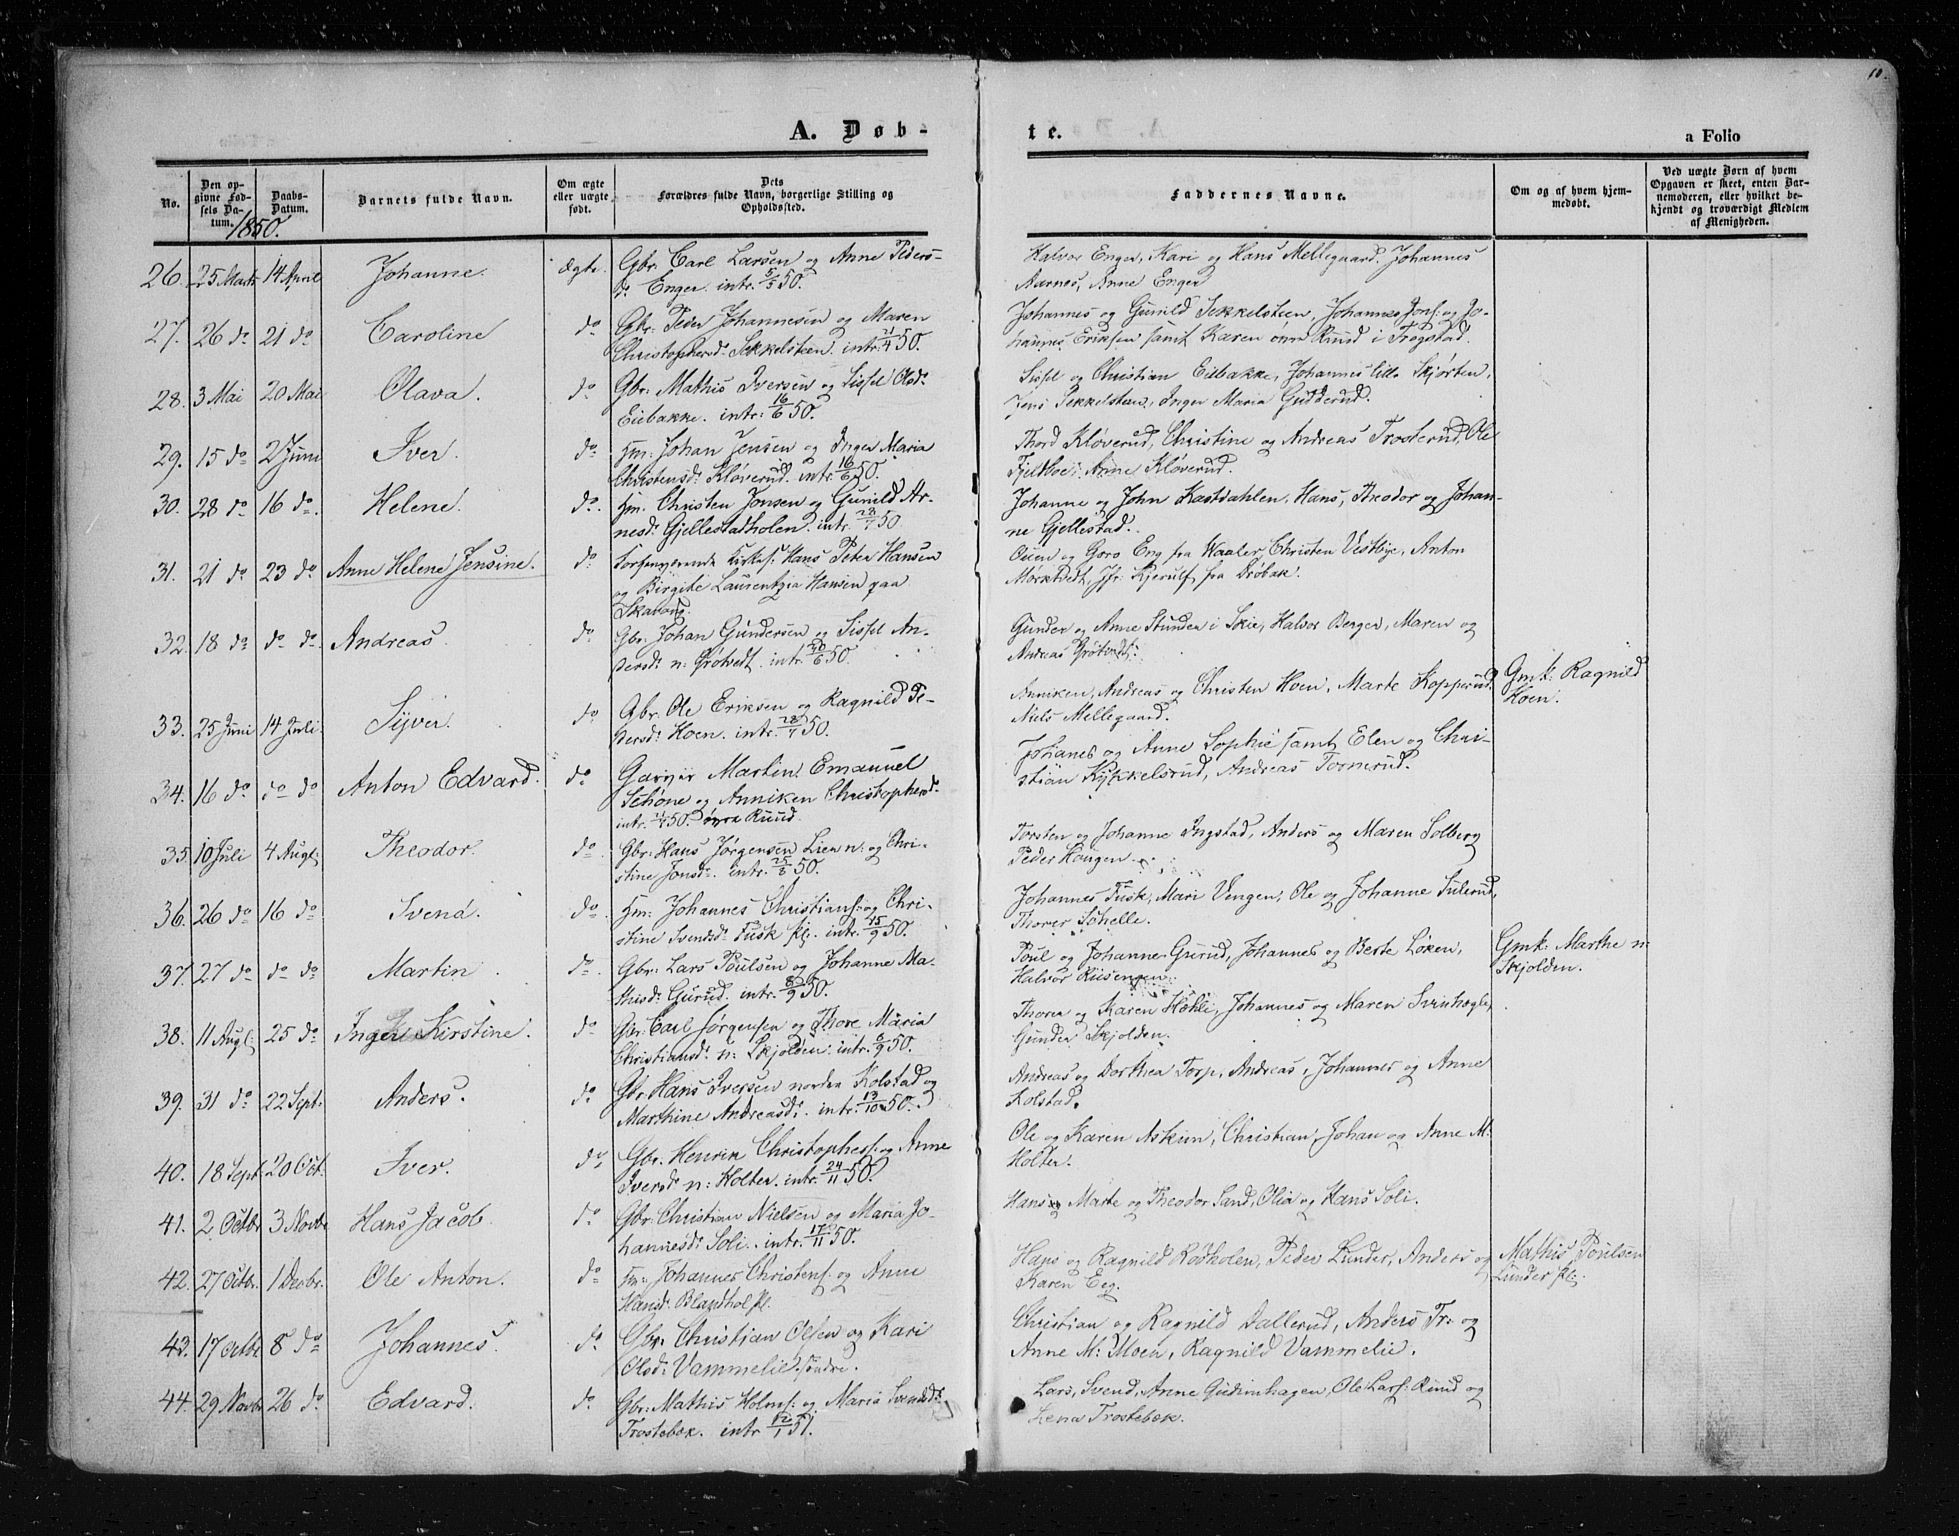 10.
A. Døb-
te.
a Folio
No.
Den opgivne Fødsels Datum.
Daabs-Datum.
Barnets fulde Navn.
Om ægte eller uægte født.
Dets Forældres fulde Navn, borgerlige Stilling og Opholdssted.
Faddernes Navne.
Om og af hvem hjemmedøbt.
Ved uægte Børn af hvem Opgaven er skeet, enten Barnemoderen, eller hvilket bekjendt og troværdigt Medlem af Menigheden.
1850.
26. 25 Marts 14 April Johanne. Ægte. Gbr. Carl Larsen og Anne Peders-
dr Enger. intr. 5/5 50.
Halvor Enger, Kari og Hans Mellegaard. Johannes
Aarnes, Anne Enger
27. 26 do 21 do Caroline do Gbr: Peder Johannesen og Maren
Christophersdr Sekkelsteen. intr. 21/4 50.
Johannes og Gunild Sekkelsteen, Johannes Jons: og Jo-
hannes Eriksen samt Karen Ruud i Trøgstad.
28. 3 Mai 20 Mai Olava. do Gbr: Mathis Iversen og Sissel Olsdr
Eibakke. intr: 16/6 50.
Sissel og Christian Eibakke, Johannes lille Skjørten,
Jens Sekkelsteen, Inger Maria Gudderud.
29. 15 do 2 Juni Iver. do Hm: Johan Jensen og Inger Maria
Christensdr Kløverud. intr. 16/6 50.
Thord Kløverud, Christine og Andreas Trosterud, Ole
Fjeldboe: Anne Kløverud.
30. 28 do 16 do Helene. do. Hm. Christen Jonsen og Gunild Ar-
nesdr Gjellestadholen. intr. 28/7 50.
Johanne og John Kastdahlen. Hans, Theodor og Johan-
ne Gjellestad.
31. 21 do 23 do Anne Helene Jensine. do Hans Peter Hansen
og Birgite Laurentzia Hansen paa
Skabong.
Osen og Goro Eng fra Waaler, Christen Vestbye, Anton
Morktvedt, Jfr. Kjerulf fra Drøbak.
32. 18 do do do Andreas do Gbr: Johan Gundersen og Sissel An-
dersdr n: Grøtvedt. intr. 50.
Gunder og Anne Stunder i Skie, Halvor Berger, Maren og
Andreas Grøtvedt:
33. 25 Juni 14 Juli. Syver. do Gbr: Ole Eriksen og Ragnild Pe-
dersdr Hoen. intr. 28/7 50.
Anniken, Andreas og Christen Hoen, Marte Kopperud.
Niels Mellegaard.
Gmk: Ragnild
Hoen.
34. 16 do do do Anton Edvard. do Garver Martin Emanuel
Schøne og Anniken Christophersdr
intr. 50. øvre Ruud.
Johanes og Anne Sophie samt Elen og Chri-
stian Kykkelsrud, Andreas Tormrud.
35. 10 Juli 4 Augl: Theodor. do Gbr: Hans Jørgensen Lien n: og Chri-
stine Jonsdr. intr. 25/8 50.
Torsten og Johanne Ingstad, Anders og Maren Solberg
Peder Haugen.
36. 26 do 16 do Svend. do Hm: Johannes Christians: og Chri-
stine Svendsdr Fusk pl. intr. 15/9 50.
Johannes Fusk, Mari Vengen, Ole og Johanne Sulerud,
Thorer Schelle.
37. 27 do do do Martin. do. Gbr: Lars Poulsen og Johanne Ma-
thisdr Gurud. intr. 8/9 50.
Poul og Johanne Gurud, Johannes og Berte Løken,
Halvor Riisengen.
Gmk. Marthe n:
Skjolden.
38. 11 Augl: 25 do Inger Kirstine. do Gbr: Carl Jørgensen og Thore Maria
Christiansdr n: Skjolden. intr. 8/9 50.
Thorer og Karen Høkli, Johannes og Maren Svinhøgle,
Gunder Skjolden.
39. 31 do 22 Sept: Anders. do Gbr. Hans Iversen nordre Kolstad og
Marthine Andreasdr. intr. 13/10 50.
Andreas og Dorthea Torp, Andreas, Johannes og Anne
Kolstad.
40. 18 Sept: 20 Oct. Iver. do Gbr. Henrik Christophers: og Anne
Iversdr n: Holter. intr. 24/11 50.
Ole og Karen Askim, Christian, Johan og Anne M:
Holter.
41. 2 Octbr 3 Novbr Hans Jacob. do Gbr: Christian Nielsen og Maria Jo-
hannesdr Soli. intr. 17/11 50.
Hans og Marte og Theodor Sand, Olia og Hans Soli.
42. 27 Octbr. 1 Decbr. Ole Anton. do Hm: Johannes Christens: og Anne
Hansdr Blandholpl.
Hans og Ragnild Rødholen, Peder Lunder, Anders og
Karen Eeg.
Mathis Poulsen
Lunder pl:
43. 17 Octbr 8 do Johannes. do Gbr. Christian Olsen og Kari
Olsdr Vammelie søndre.
Christian og Ragnild Dallerud, Anders Tr: og
Anne M: Moen, Ragnild Vammelie.
44. 29 Novbr 26 do Edvard. do Gbr: Mathis Holms: og Maria Svendsdr
Trostebæk. intr 12/1 51.
Lars, Svend, Anne Gudimhagen, Ole Lars: Ruud og
Lena Trostebæk.